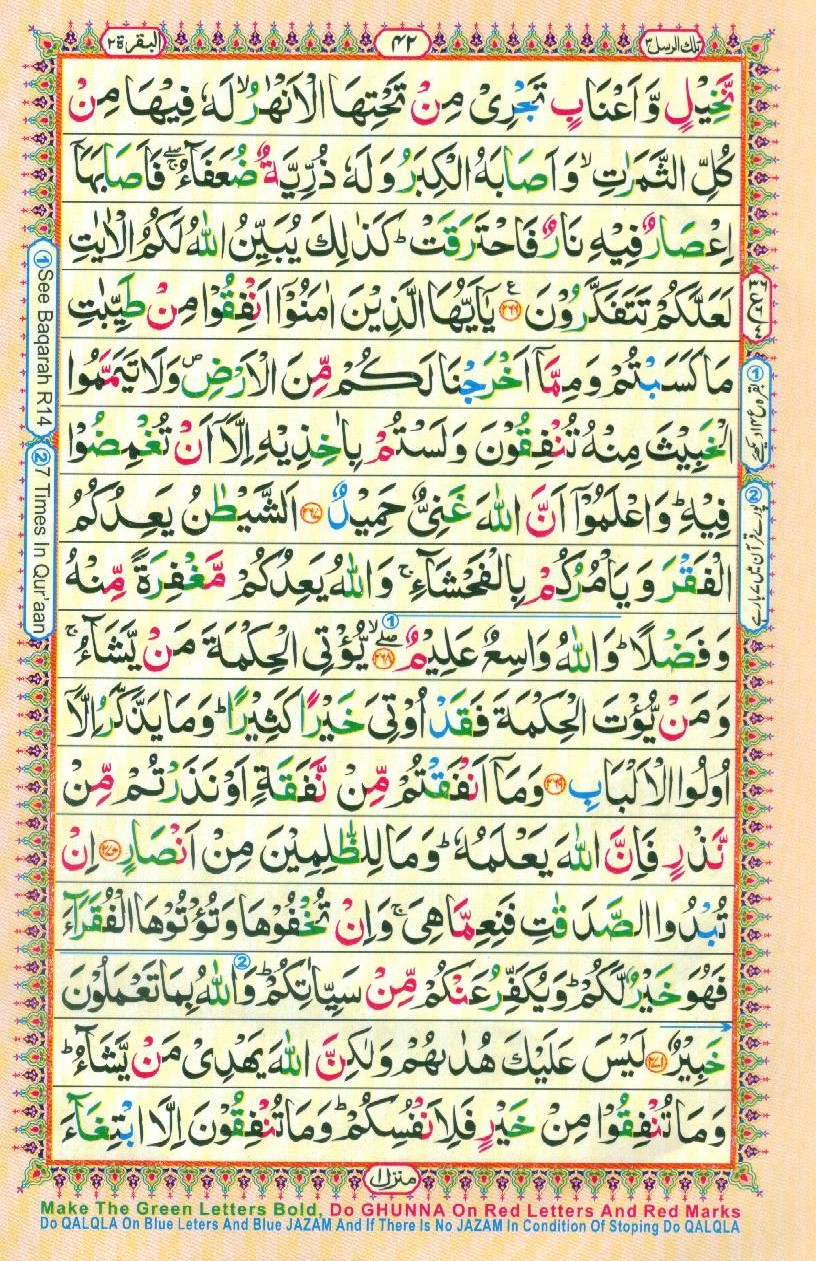 تلك الرسل ٣
٤٢
البقرة ٢
نَّخِيْلٍ وَّاَعْنَابٍ تَجْرِىْ مِنْ تَحْتِهَا الْاَنْهٰرُ ۙ لَهٗ فِيْهَا مِنْ
كُلِّ الثَّمَرٰتِ ۙ وَاَصَابَهُ الْكِبَرُ وَلَهٗ ذُرِّيَّةٌ ضُعَفَآءُ ۖۚ فَاَصَابَهَاۤ
اِعْصَارٌ فِيْهِ نَارٌ فَاحْتَرَقَتْ ؕ كَذٰلِكَ يُبَيِّنُ اللّٰهُ لَكُمُ الْاٰيٰتِ
لَعَلَّكُمْ تَتَفَكَّرُوْنَ ﴿۲۶۶﴾ يٰۤاَيُّهَا الَّذِيْنَ اٰمَنُوْۤا اَنْفِقُوْا مِنْ طَيِّبٰتِ
مَا كَسَبْتُمْ وَمِمَّاۤ اَخْرَجْنَا لَكُمْ مِّنَ الْاَرْضِ ۪ وَلَا تَيَمَّمُوا
الْخَبِيْثَ مِنْهُ تُنْفِقُوْنَ وَلَسْتُمْ بِاٰخِذِيْهِ اِلَّاۤ اَنْ تُغْمِضُوْا
فِيْهِ ؕ وَاعْلَمُوْۤا اَنَّ اللّٰهَ غَنِىٌّ حَمِيْدٌ ﴿۲۶۷﴾ اَلشَّيْطٰنُ يَعِدُكُمُ
الْفَقْرَ وَيَاْمُرُكُمْ بِالْفَحْشَآءِ ۚ وَاللّٰهُ يَعِدُكُمْ مَّغْفِرَةً مِّنْهُ
وَفَضْلًا ؕ وَاللّٰهُ وَاسِعٌ عَلِيْمٌ ۖۙ ﴿۲۶۸﴾ ① يُّؤْتِى الْحِكْمَةَ مَنْ يَّشَآءُ ۚ
وَمَنْ يُّؤْتَ الْحِكْمَةَ فَقَدْ اُوْتِىَ خَيْرًا كَثِيْرًا ؕ وَمَا يَذَّكَّرُ اِلَّاۤ
اُولُوا الْاَلْبَابِ ﴿۲۶۹﴾ وَمَاۤ اَنْفَقْتُمْ مِّنْ نَّفَقَةٍ اَوْ نَذَرْتُمْ مِّنْ
نَّذْرٍ فَاِنَّ اللّٰهَ يَعْلَمُهٗ ؕ وَمَا لِلظّٰلِمِيْنَ مِنْ اَنْصَارٍ ﴿۲۷۰﴾ اِنْ
تُبْدُوا الصَّدَقٰتِ فَنِعِمَّا هِىَ ۚ وَاِنْ تُخْفُوْهَا وَتُؤْتُوْهَا الْفُقَرَآءَ
فَهُوَ خَيْرٌ لَّكُمْ ؕ وَيُكَفِّرُ عَنْكُمْ مِّنْ سَيِّاٰتِكُمْ ؕ ② وَاللّٰهُ بِمَا تَعْمَلُوْنَ
خَبِيْرٌ ﴿۲۷۱﴾ لَيْسَ عَلَيْكَ هُدٰىهُمْ وَلٰكِنَّ اللّٰهَ يَهْدِىْ مَنْ يَّشَآءُ ؕ
وَمَا تُنْفِقُوْا مِنْ خَيْرٍ فَلِاَنْفُسِكُمْ ؕ وَمَا تُنْفِقُوْنَ اِلَّا ابْتِغَآءَ
① See Baqarah R14
② 7 Times In Qur'aan
منزل ١
Make The Green Letters Bold, Do GHUNNA On Red Letters And Red Marks
Do QALQLA On Blue Leters And Blue JAZAM And If There Is No JAZAM In Condition Of Stoping Do QALQLA